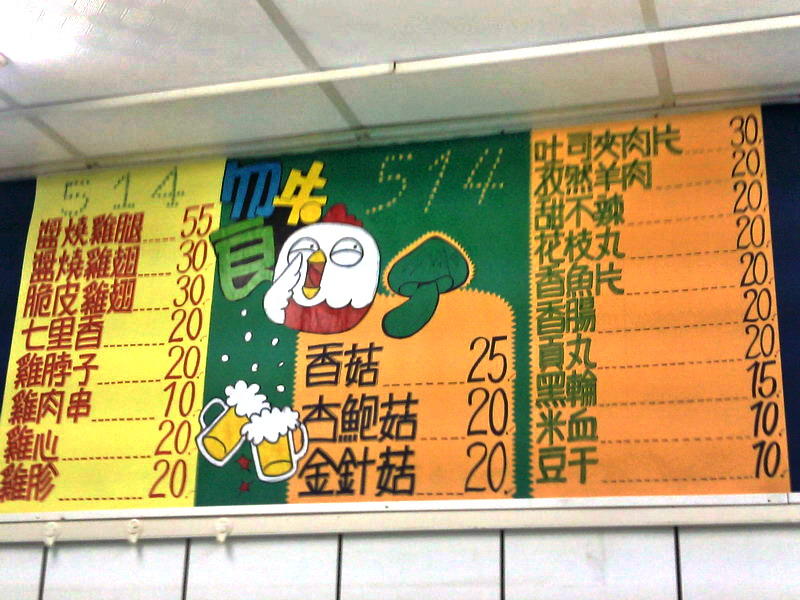 514
醬燒雞腿 55
醬燒雞翅 30
脆皮雞翅 30
七里香 20
雞脖子 20
雞肉串 10
雞心 20
雞胗 20
514
香菇 25
杏鮑菇 20
金針菇 20
吐司夾肉片 30
孜然羊肉 20
甜不辣 20
花枝丸 20
香魚片 20
香腸 20
貢丸 20
黑輪 15
米血 10
豆干 10